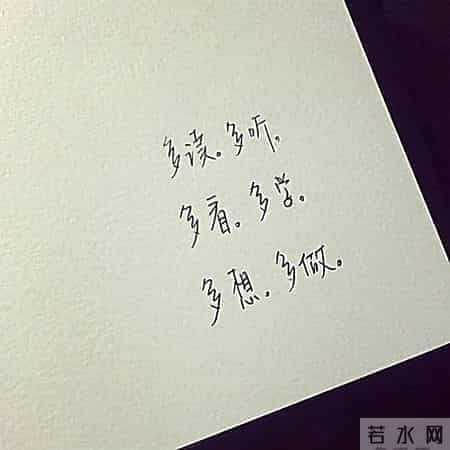 多读。多听，
多看。多学。
多想。多做。
若水网